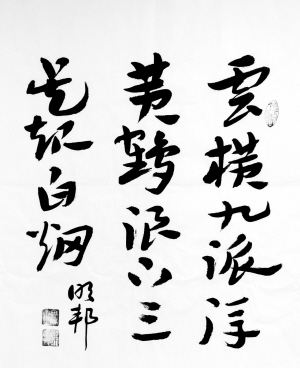 雲横九派浮
黄鶴浪下三
吴起白烟
明邦